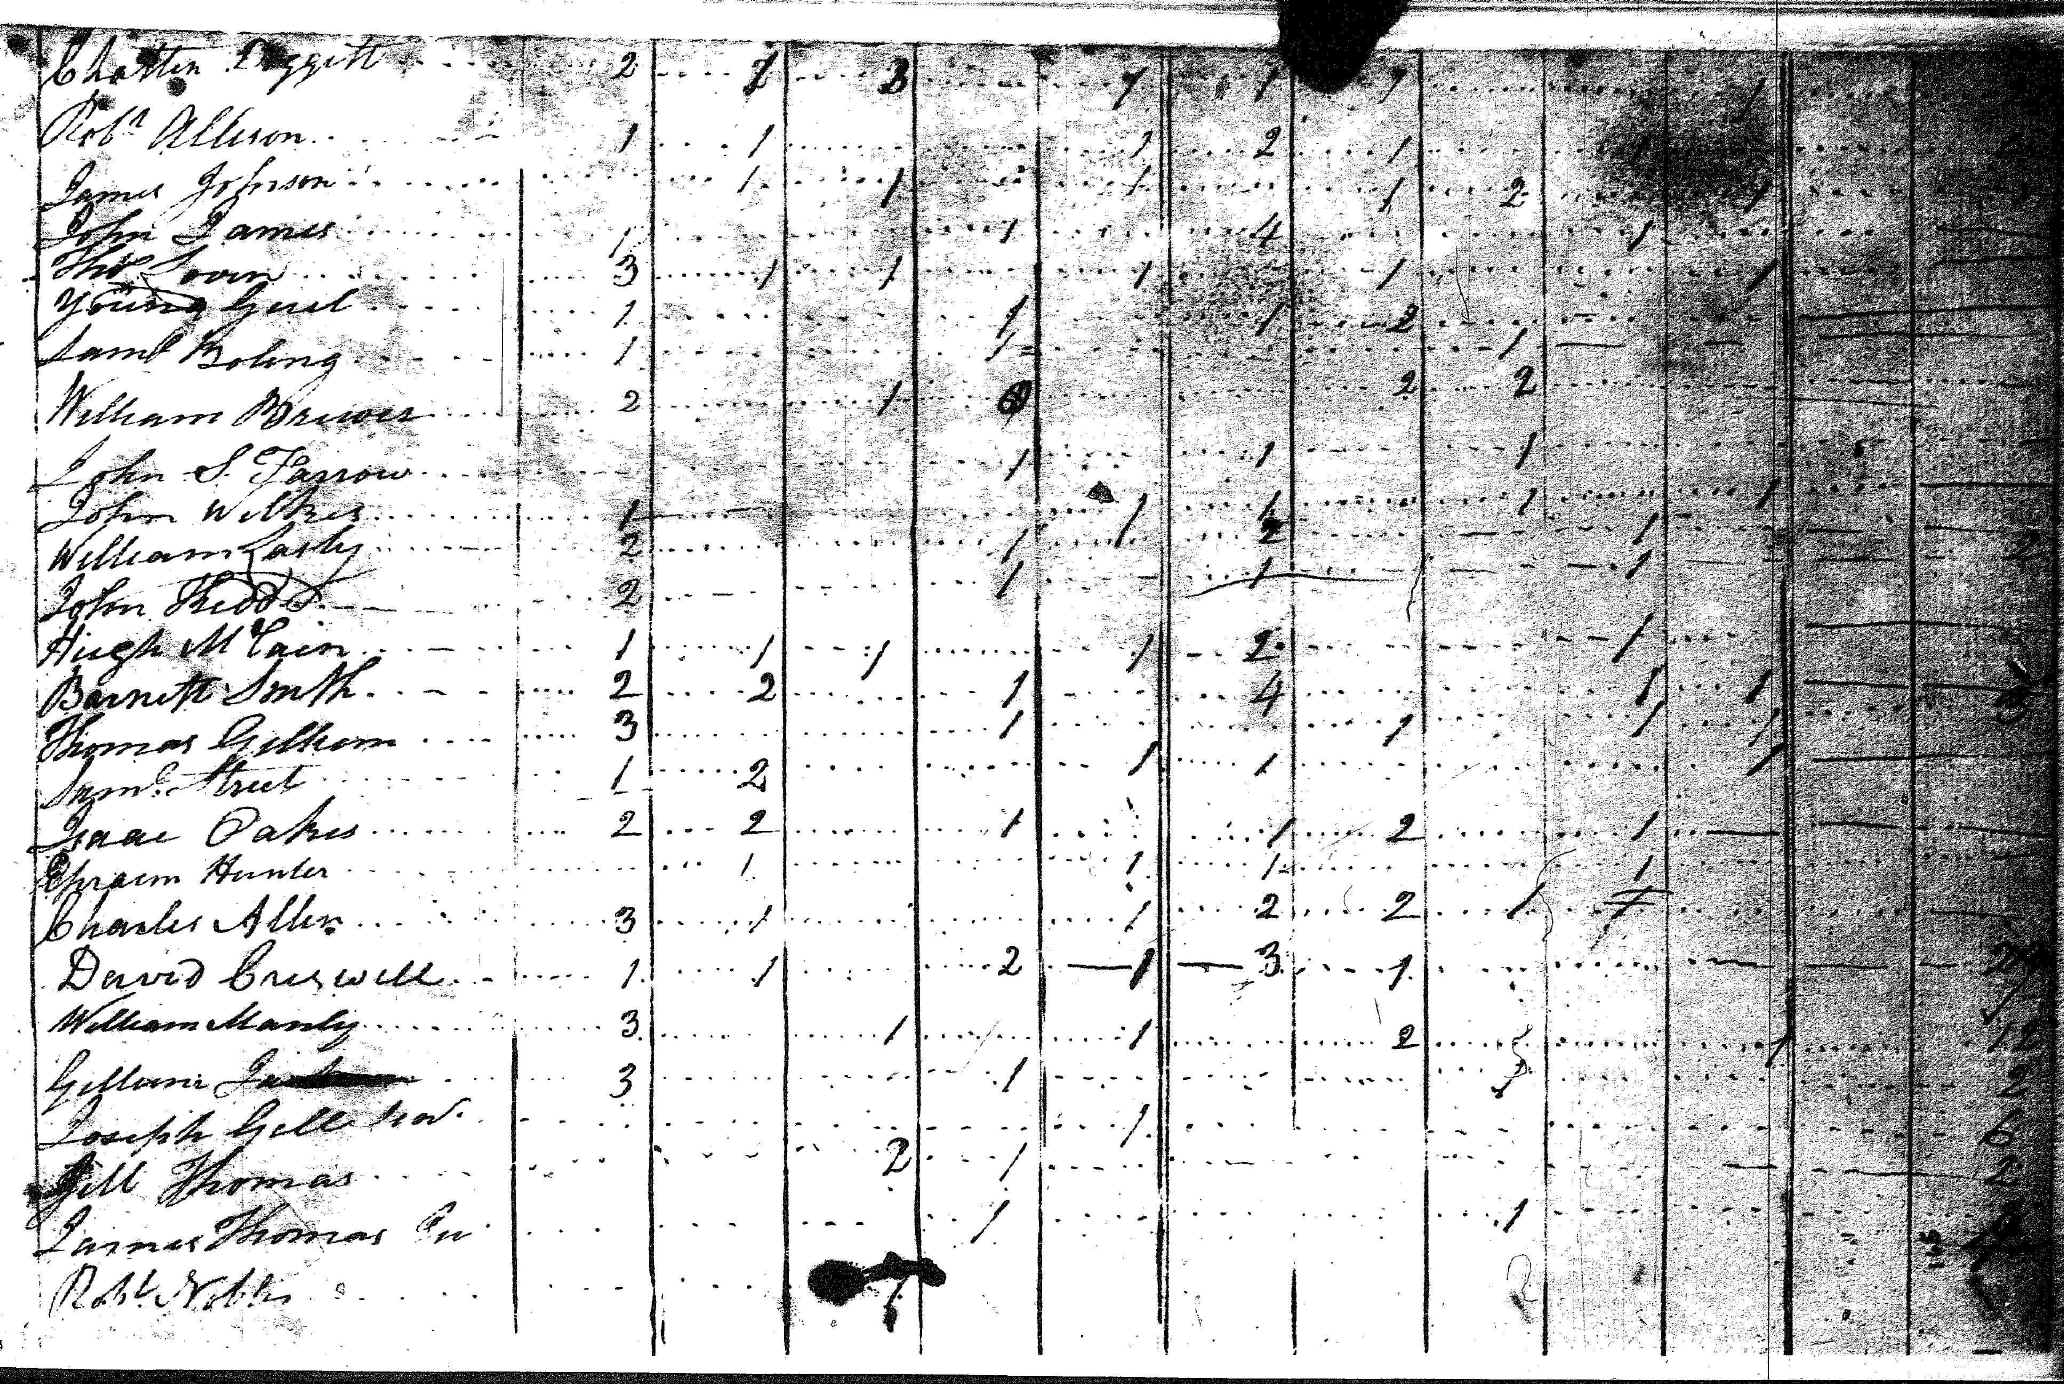 Chatten Doggett 2 1 3 1 1 1 1
Robt Allison 1 1 1 2 1
James Johnson 1 1 1 1 2 1
John James 1 1 4 1
Thos Lovin 3 1 1 1 1 1
Young Guil 1 1 1 2
Saml Boling 1 1 1
William Brewer 2 1 2 2
John S. Farrow 1 1 1
John Wilkes 1 1 1 1 1
William Lasly 2 1 2 1 2
John Kidd 2 1 1 1
Hugh McCain 1 1 1 1 2 1
Barnett Smith 2 2 1 4 1 1
Thomas Gilliam 3 1 1 1 1
Saml Street 1 2 1 1 1
Isaac Oakes 2 2 1 1 2 1
Ephraim Hunter 1 1 1 1
Charles Allen 3 1 1 2 2 1
David Criswell 1 1 2 1 3 1
William Manly 3 1 1 2 1 12
Gilliam 3 1 1 2
Joseph Gill 1 6
Gill Thomas 2 1 2
James Thomas 1 1
Robt Nobles 1